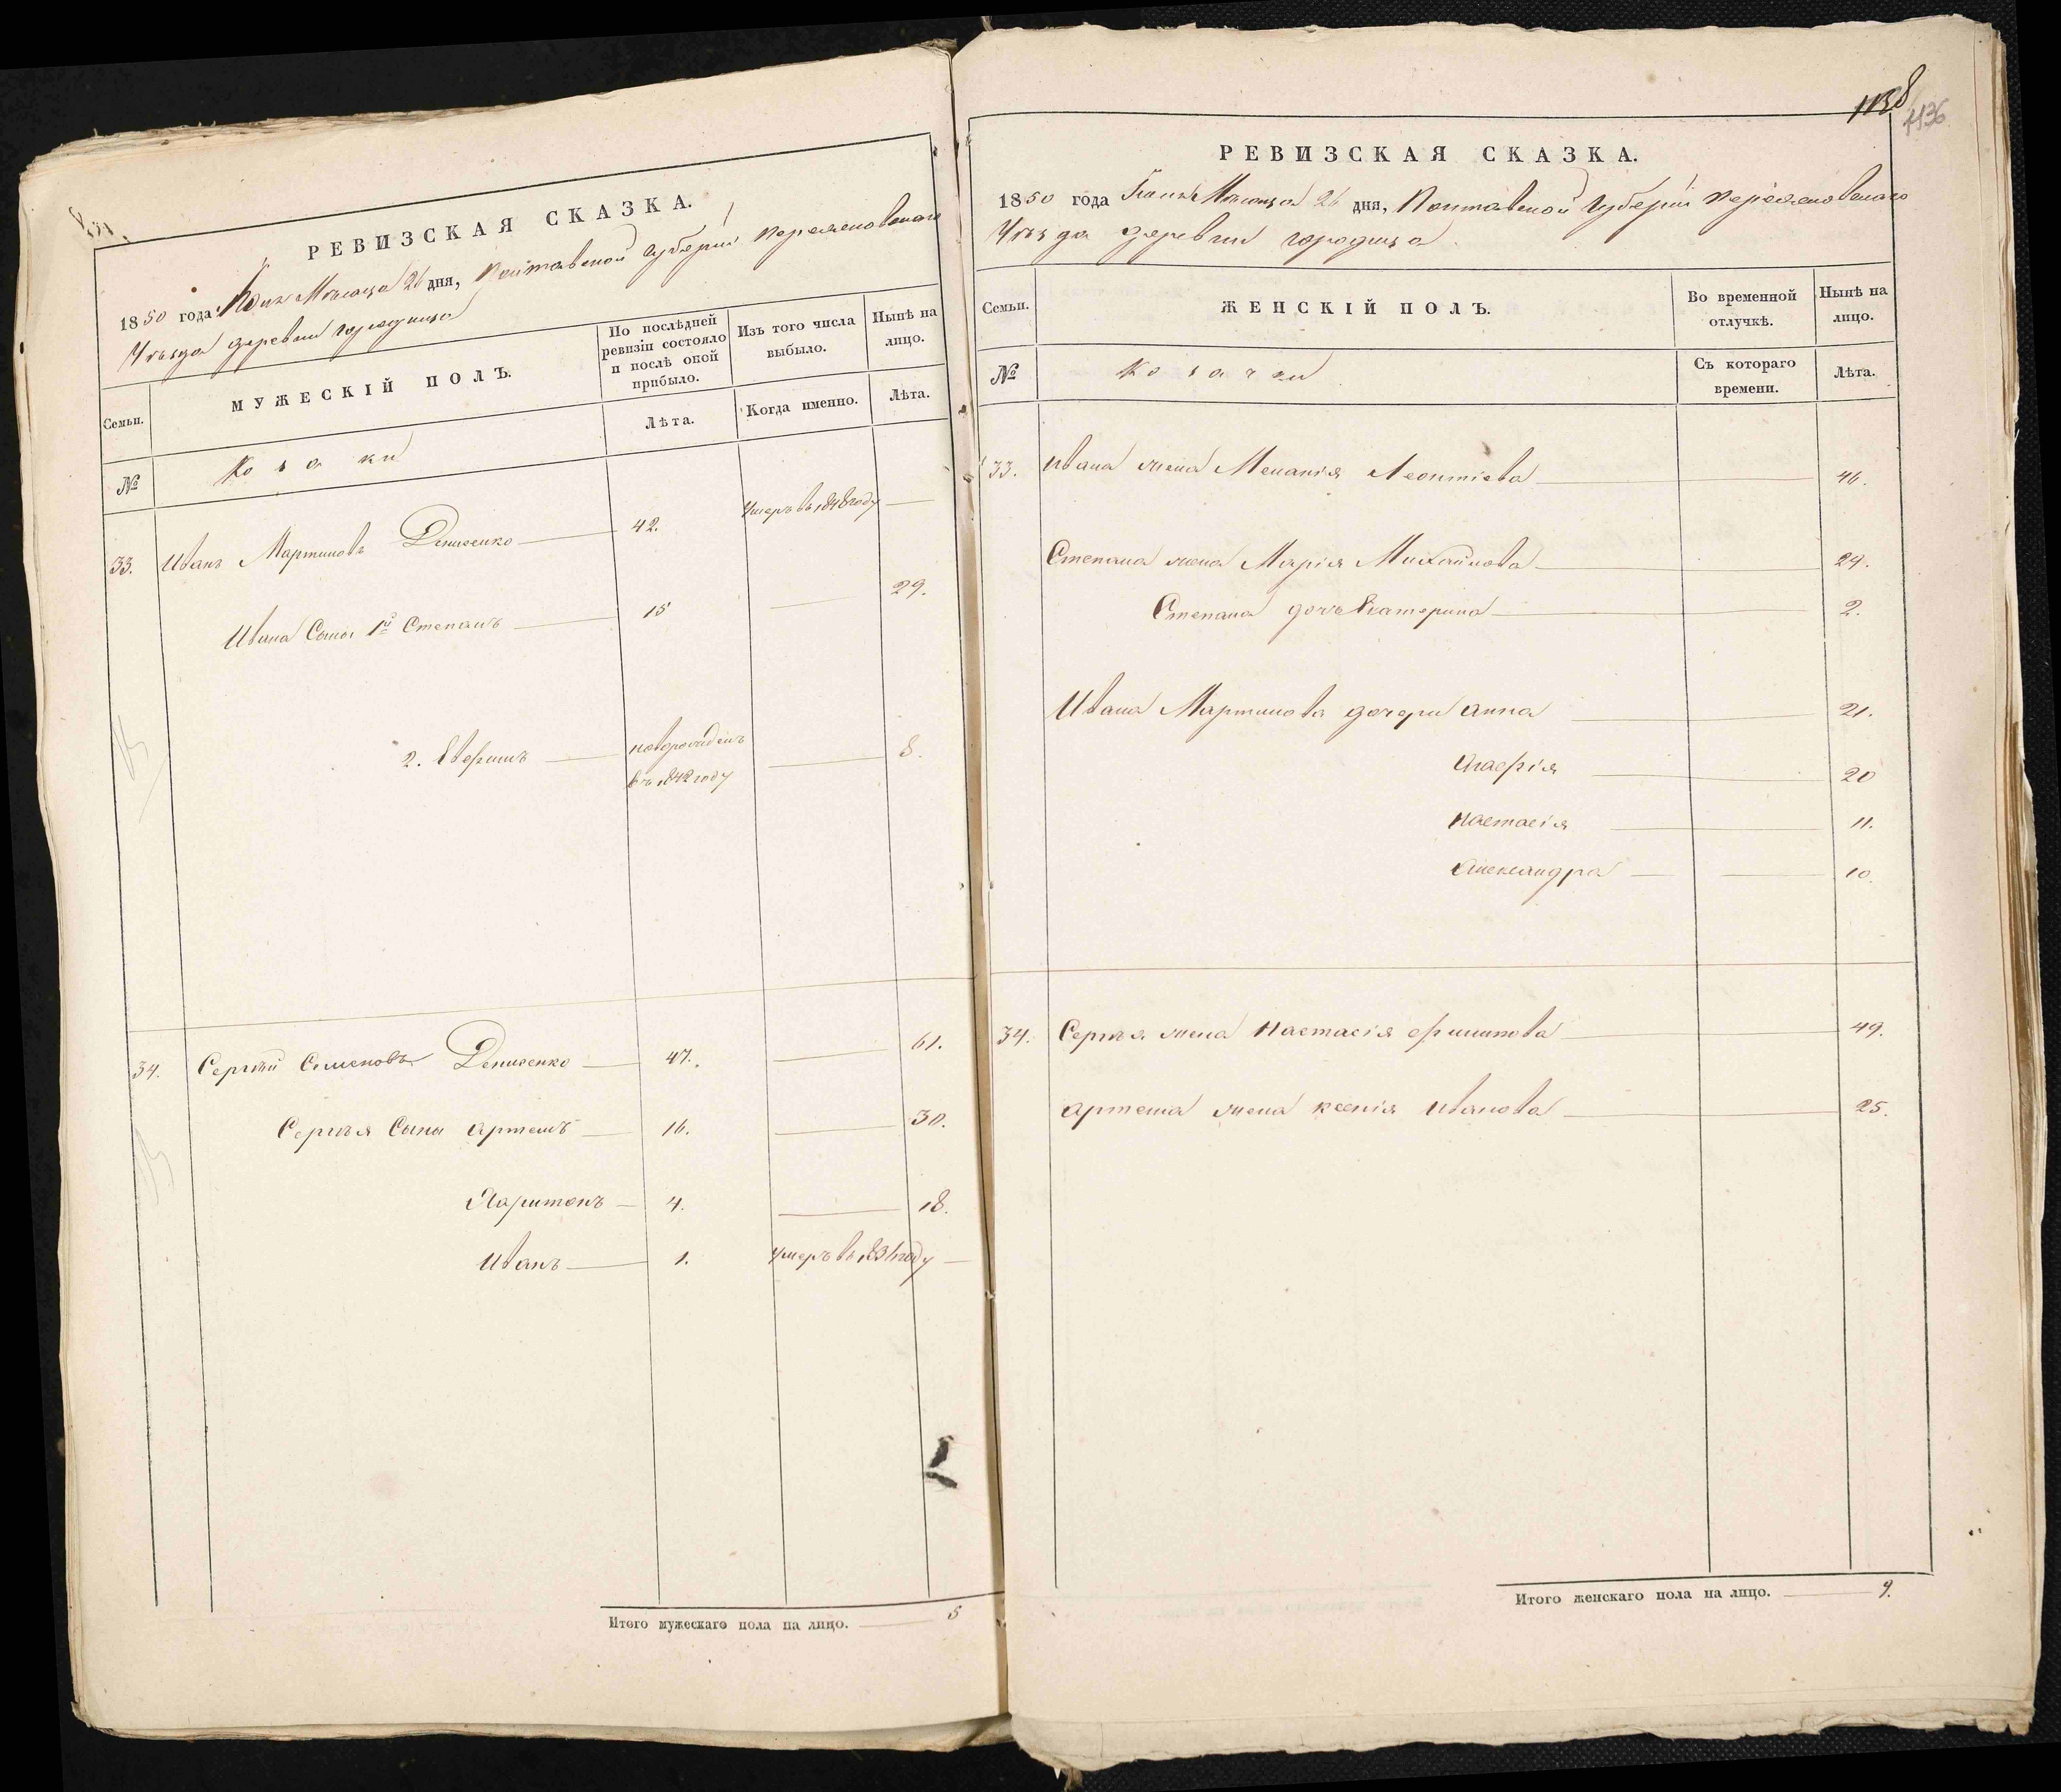 РЕВИЗСКАЯ СКАЗКА.
1850 года Юня Месяца 26 дня, Полтавской Губернии Переяславскаго
Уѣзда деревни городища
Семьи.
МУЖЕСКІЙ ПОЛЪ.
По послѣдней
ревизіи состояло
и послѣ оной
прибыло.
Изъ того числа
выбыло.
Нынѣ на
лицо.
№
Козаки
Лѣта.
Когда именно.
Лѣта.
33. Иванъ Мартиновъ Денисенко 42. Умеръ въ 1848 году
Ивана Сыны 1й Степанъ 15 29.
2. Ефримъ новорожденъ 8.
въ 1842 году
34. Сергѣй Семеновъ Денисенко 47. 61.
Сергѣя Сыны Артемъ 16. 30.
Харитонъ 4. 18.
Иванъ 1. умеръ въ году
Итого мужескаго пола на лицо. 5
1138
1136
РЕВИЗСКАЯ СКАЗКА.
1850 года Месяца 26 дня, Полтавской Губернии Переяславскаго
Уѣзда деревни городища
Семьи.
ЖЕНСКІЙ ПОЛЪ.
Во временной
отлучкѣ.
Нынѣ на
лицо.
№
Козачки
Съ котораго
времени.
Лѣта.
33. Ивана жена Меланія Леонтіева 46.
Степана жена Марія Михайлова 24.
Степана дочь Екатерина 2.
Ивана Мартинова дочери Анна 21.
Агафія 20
Настасія 11.
Александра 10.
34. Сергѣя жена Настасія Филипова 49.
Артема жена Ксенія Иванова 25.
Итого женскаго пола на лицо. 9.